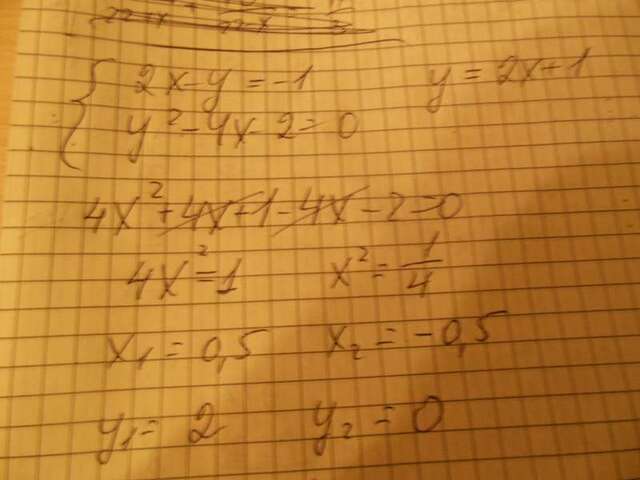 2x-y=-1 y=2x+1
y²-4x-2=0
4x²+4x+1-4x-2=0
4x²=1 x²=1/4
x₁=0,5 x₂=-0,5
y₁=2 y₂=0